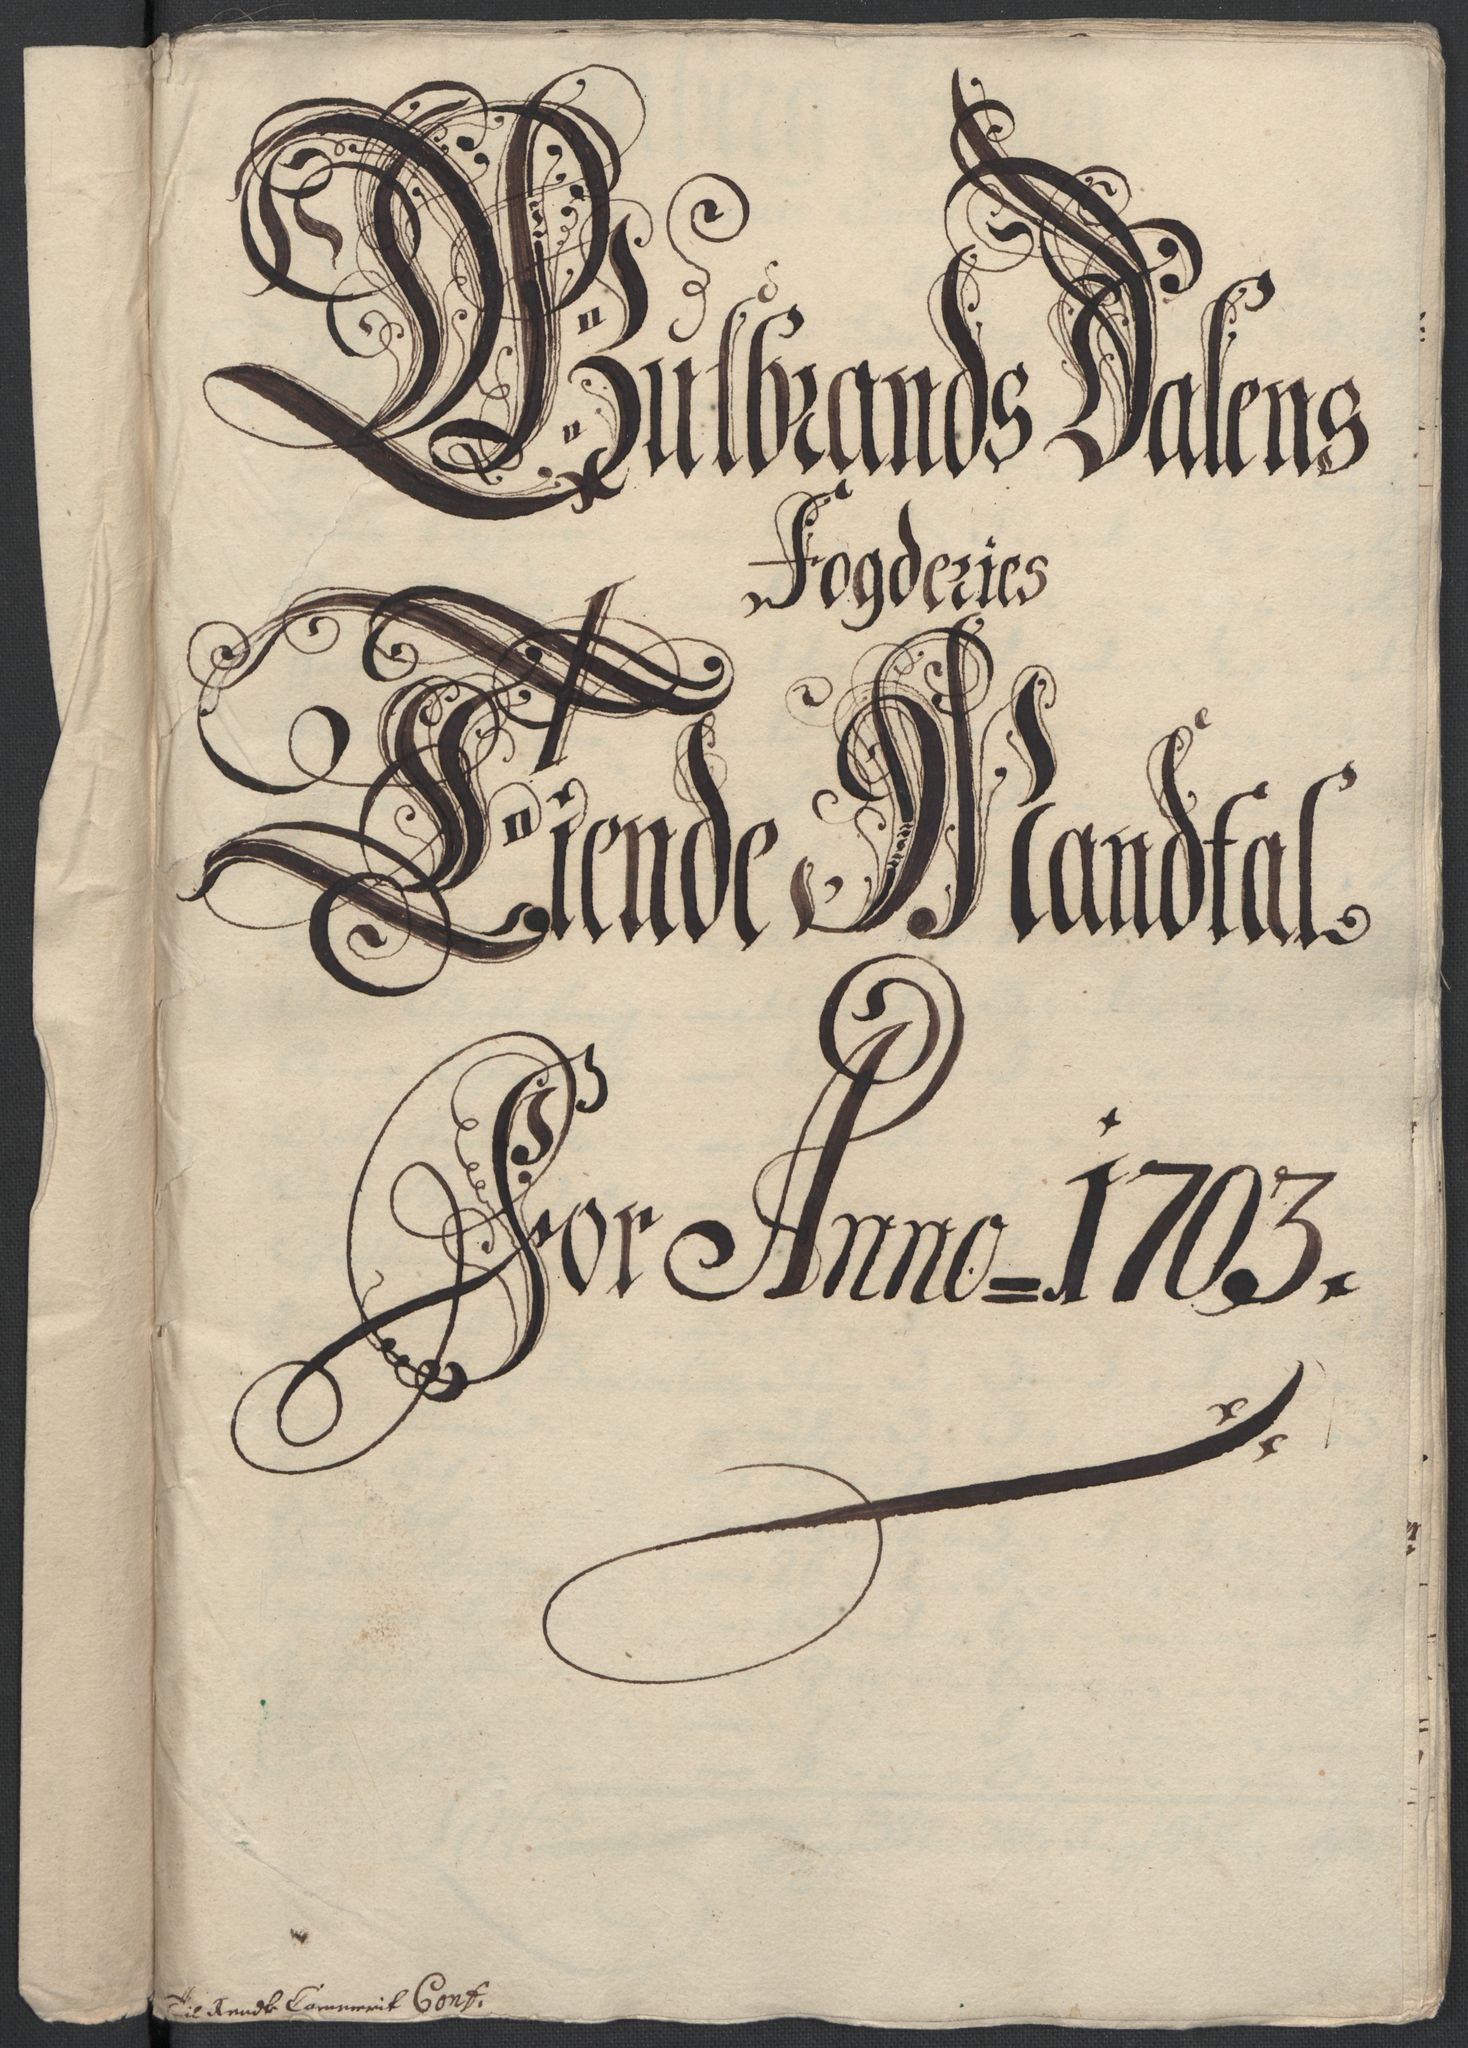 Gulbrands Dalens
Fogderies
Tiende Mandtal
For Anno=1703.
Til Rendte Cammerit Conf.